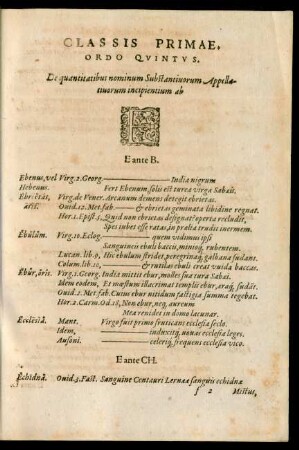 CLASSIS PRIMAE,
ORDO QVINTVS,
De quantitatibus nominum Substantiuorum Appella-
tiuorum incipientium ab
E
E ante B.
Ebenus, vel Virg. 2. Georg. India nigrum
Hebenum. Fert Ebenum, solis est turea virga Sabæis.
Ebrietas, Virg. de Vener. Arcanum demens detegit ebrietas.
ātis. Ouid. 12. Met. fab. & ebrietas geminata libidine regnat.
Hor. 1. Epist. 5. Quid non ebrietas designat? operta recludit,
Spes iubet esse ratas: in prælia trudit inermem.
Ebŭlŭm. Virg. 10. Eclog. quem vidimus ipsi
Sanguineis ebuli baccis, minioq́; rubentem.
Lucan. lib. 9. Hic ebulum stridet, peregrinaq́; galbana sudant.
Colum. lib. 10. & rutilas ebuli creat vuida baccas.
Ebŭr, ŏris. Virg. 1. Georg. India mittit ebur, molles sua tura Sabæi.
Idem eodem, Et mœstum illacrimat templis ebur, æraq́; sudāt.
Ouid. 2. Met. fab. Cuius ebur nitidum fastigia summa tegebat.
Hor. 2. Carm. Od. 18, Non ebur, neq; aureum
Mea renidet in domo lacunar.
Ecclēsiă. Mant. Virgo fuit primo fenticani ecclesia seclo.
Idem, ecclesia leges.
Ausoni. celeriq́; frequens ecclesia vico.
E ante CH.
Echidnă. Ouid. 5. Fast. Sanguine Centauri Lernææ sanguis echidnæ
f 2 Mistus,